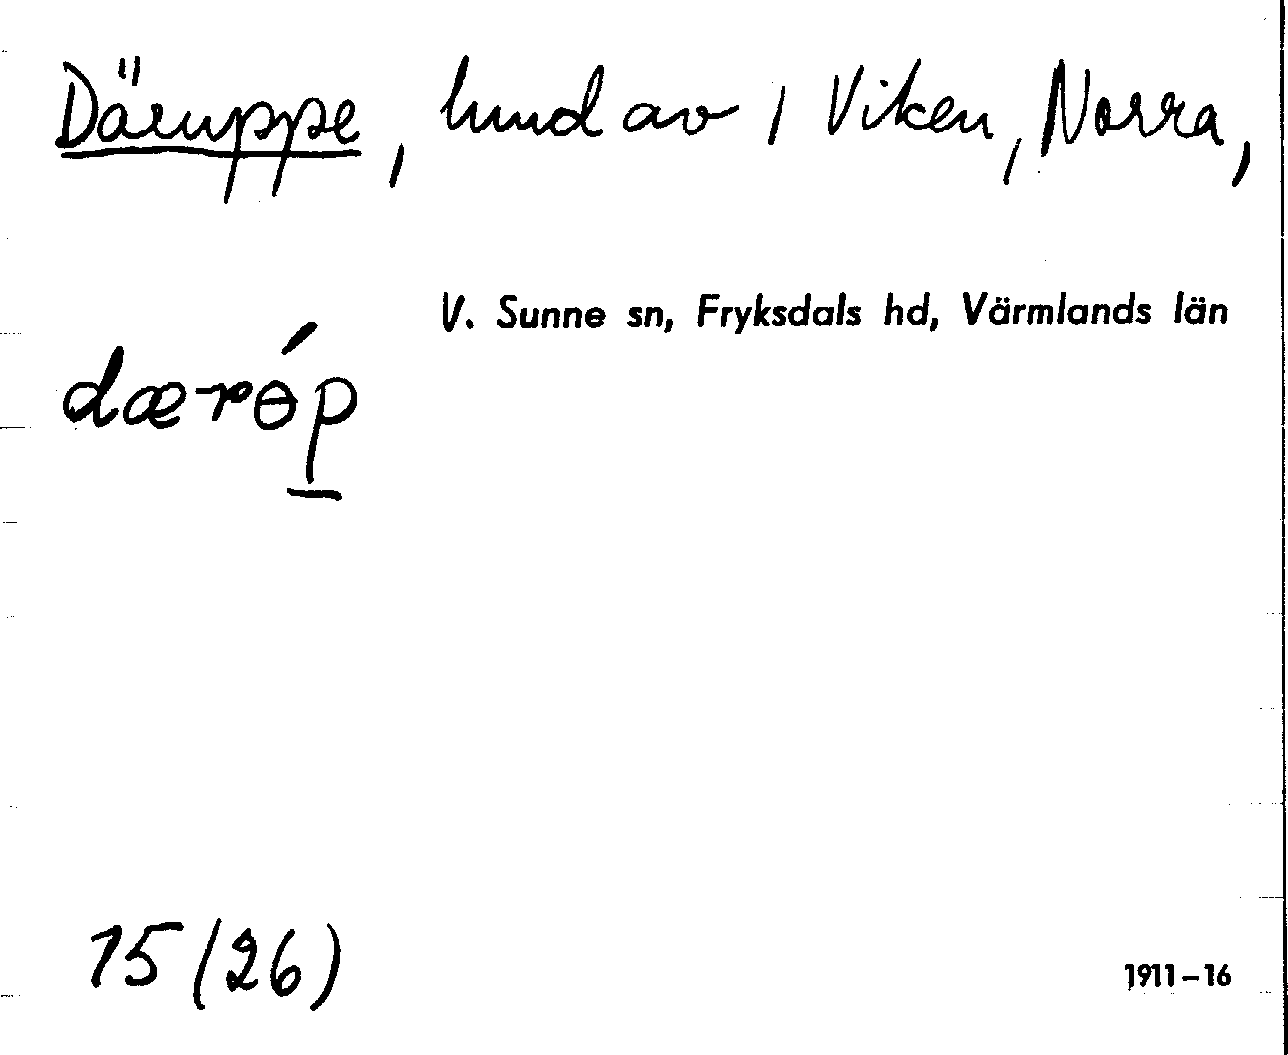 Däruppe, hmd av 1 Viken, Norra,
V. Sunne sn, Fryksdals hd, Värmlands län
dæ-rɵ́p
15 (26)
1911-16